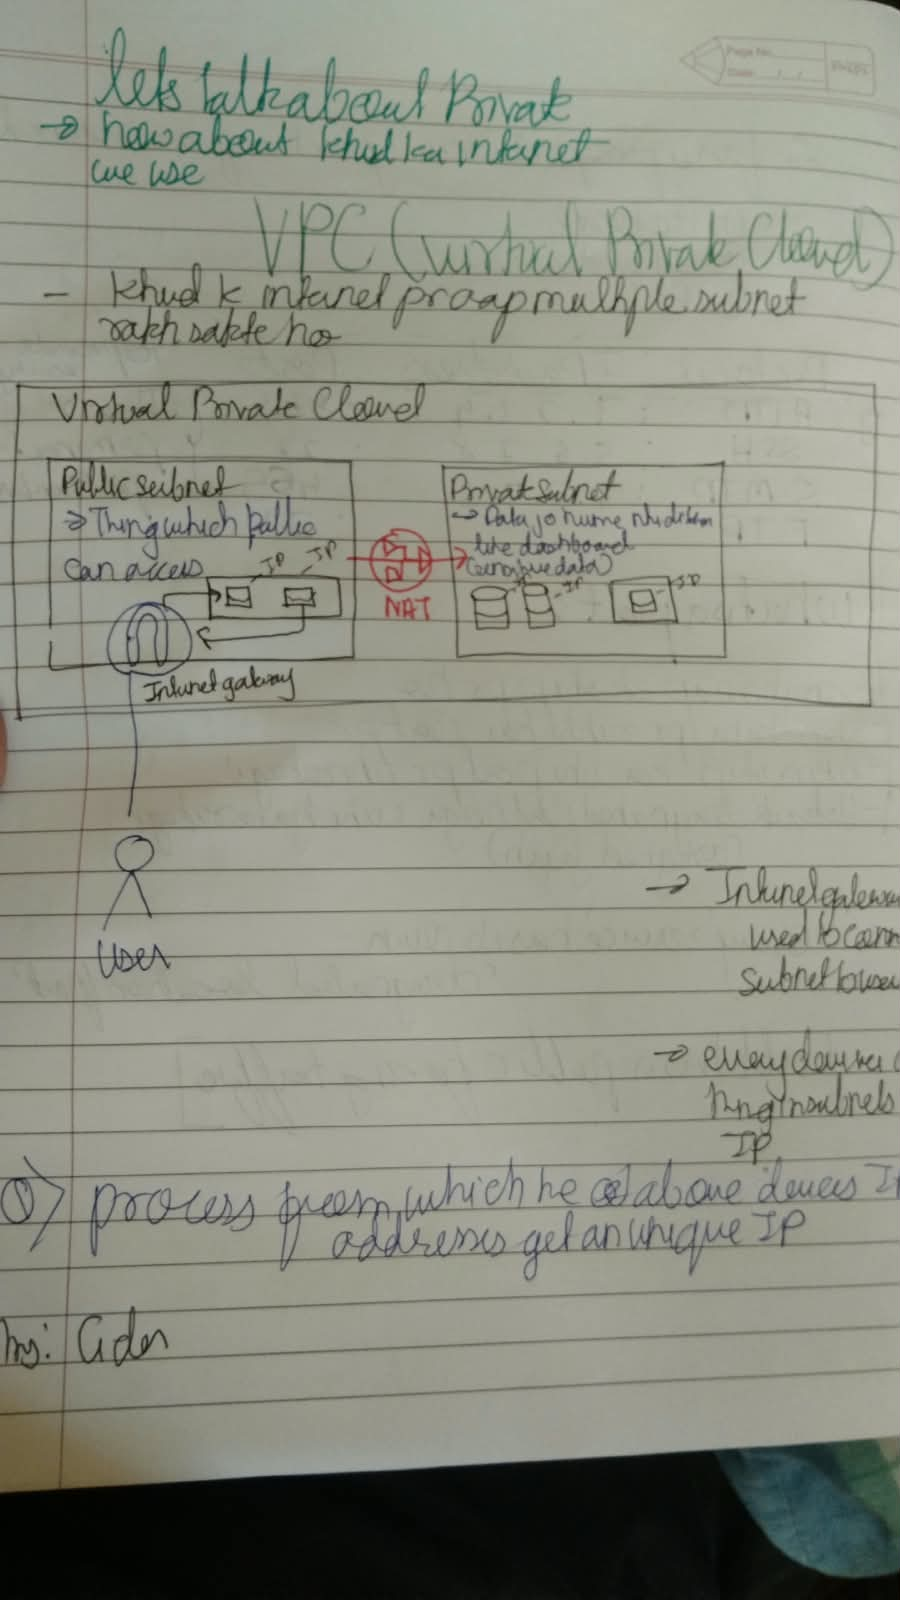 Page No.
Date
lets talk about Private
→ how about khud ka intenet
we use
VPC (virtual Private Cloud)
- khud k intenet pr aap multiple subnet
rakh sakte ho
Virtual Private Cloud
Public subnet
→ Thing which public
can access
IP
IP
Internet gateway
NAT
Privat subnet
→ Data jo hume nhi dikhana
like dashboard
(sensitive data)
IP
IP
User
→ Internet gateway
used to conn
subnet to user
→ every device
thing in subnets
IP
Q) process from which the above devices IP
addresses get an unique IP
Ans: Cider